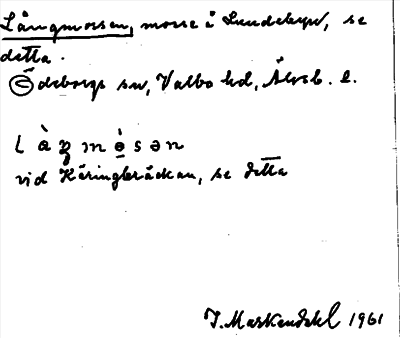 Långmossen, mosse i Lundebyn, se
detta.
Ödeborgs sn, Valbo hd, Älvsb. l.
vid Käringbräckan, se detta
J. Markendahl 1961